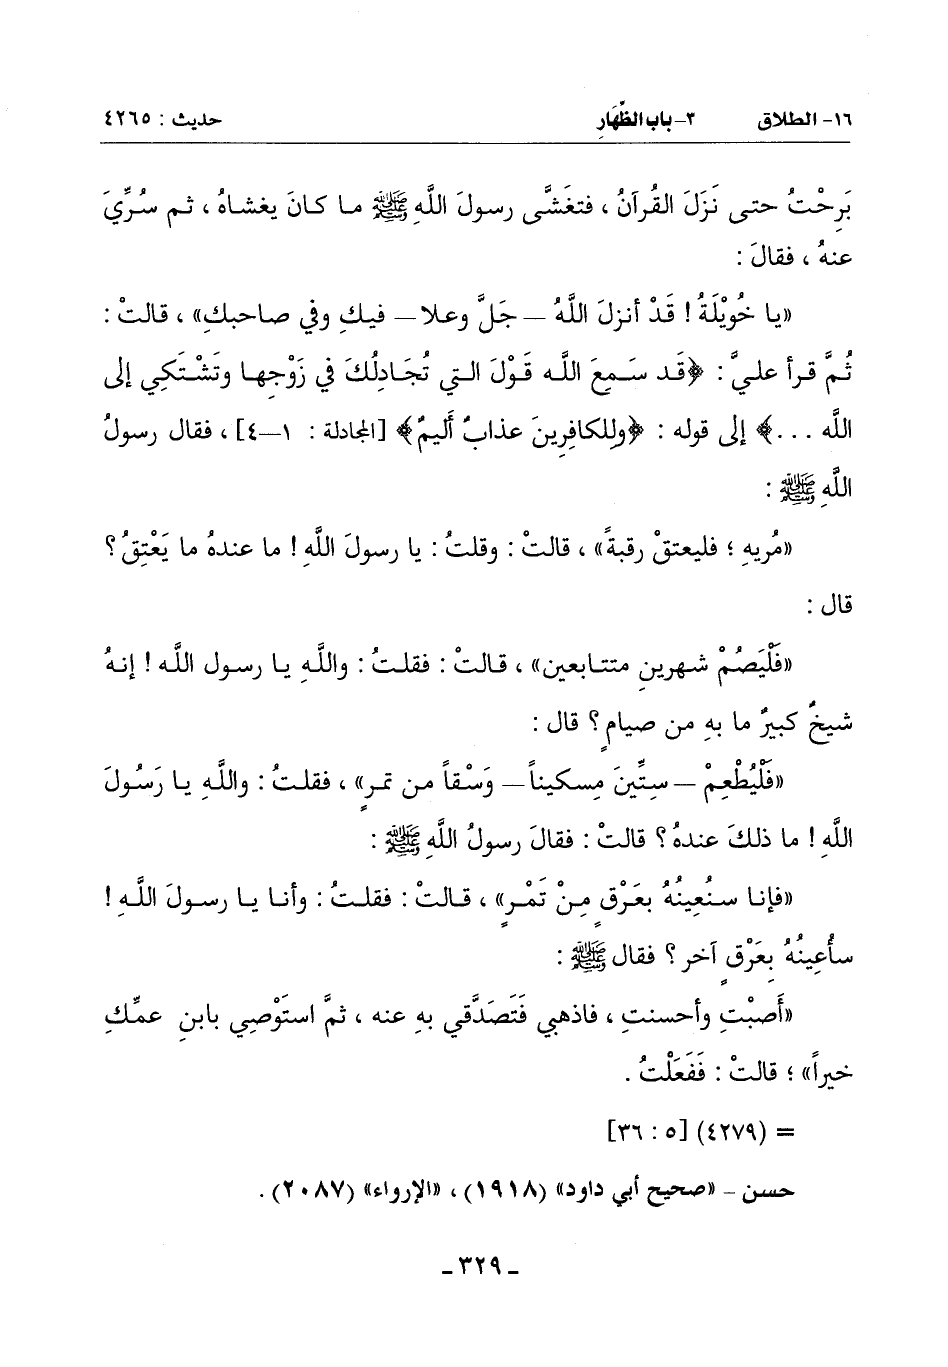 ١٦- الطلاق ٢- باب الظِّهَارِ حديث : ٤٢٦٥
بَرِحْتُ حتى نَزَلَ القُرآنُ ، فتغَشَّى رسولَ اللَّهِ ﷺ ما كانَ يغشاهُ ، ثم سُرِّيَ
عنهُ ، فقالَ :
«يا خُوَيْلَةُ ! قَدْ أنزلَ اللَّهُ – جَلَّ وعلا – فيكِ وفي صاحبكِ» ، قالتْ :
ثُمَّ قرأ عليَّ : ﴿قَد سَمِعَ الله قَوْلَ التي تُجَادِلُكَ في زَوْجِها وتَشْتَكِي إلى
اللَّه ...﴾ إلى قوله : ﴿وللكافِرِينَ عذابٌ أَليمٌ﴾ [المجادلة : ١–٤] ، فقال رسولُ
اللَّهِ ﷺ :
«مُريهِ ؛ فليعتقْ رقبةً» ، قالتْ : وقلتُ : يا رسولَ اللَّهِ ! ما عندهُ ما يَعْتِقُ ؟
قال :
«فَلْيَصُمْ شهرينِ متتابعين» ، قالتْ : فقلتُ : واللَّهِ يا رسول اللَّه ! إنهُ
شيخٌ كبيرٌ ما بهِ من صيامٍ ؟ قال :
«فَلْيُطْعِمْ – سِتِّينَ مِسكيناً – وَسْقاً من تمرٍ» ، فقلتُ : واللَّهِ يا رَسُولَ
اللَّهِ ! ما ذلكَ عندهُ ؟ قالتْ : فقالَ رسولُ اللَّهِ ﷺ :
«فإنا سنُعِينُهُ بعَرْقٍ مِنْ تَمْرٍ» ، قالتْ : فقلتُ : وأنا يا رسولَ اللَّهِ !
سأُعِينُهُ بِعَرْقٍ آخر ؟ فقال ﷺ :
«أَصبْتِ وأحسنتِ ، فاذهبي فَتَصَدَّقي بهِ عنه ، ثمَّ استَوْصِي بابنِ عمِّكِ
خيراً» ؛ قالتْ : فَفَعَلْتُ .
= (٤٢٧٩) [٥ : ٣٦]
حسن – «صحيح أبي داود» (١٩١٨) ، «الإرواء» (٢٠٨٧) .
– ٣٢٩ –